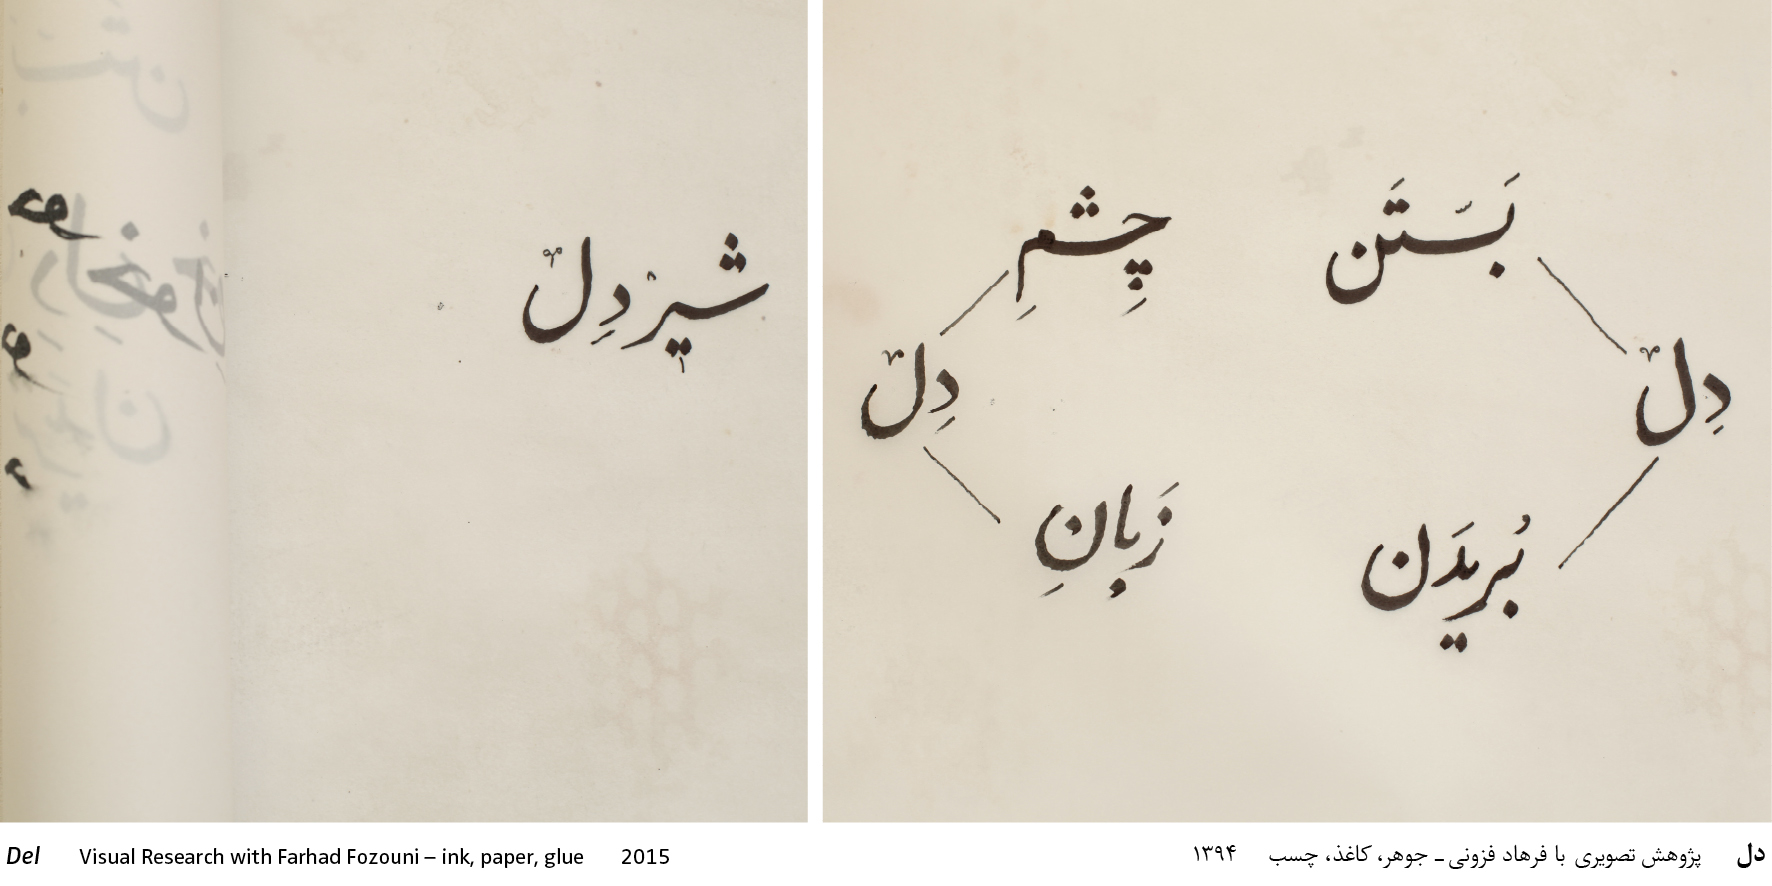 شیردِل
چِشمِ
بَستَن
دِل
دِل
زَبانِ
بُریدَن
Del Visual Research with Farhad Fozouni – ink, paper, glue 2015
دل پژوهش تصویری با فرهاد فزونی ـ جوهر، کاغذ، چسب ۱۳۹۴